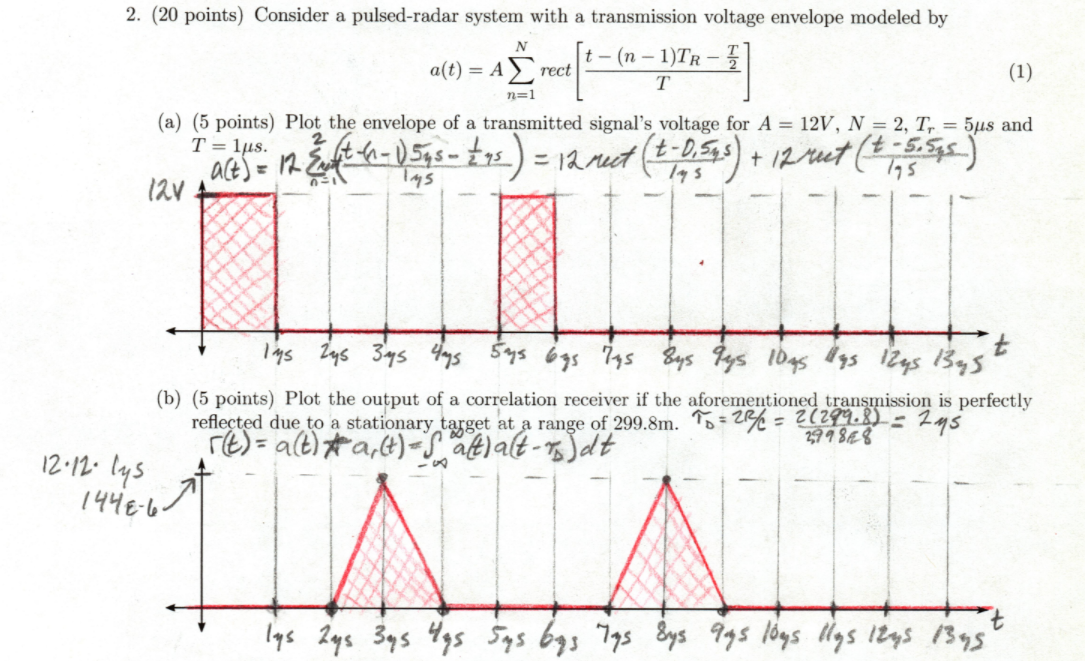 2. (20 points) Consider a pulsed-radar system with a transmission voltage envelope modeled by
a(t) = A \sum_{n=1}^{N} rect[\frac{t - (n - 1)T_R - \frac{T}{2}}{T}] (1)
(a) (5 points) Plot the envelope of a transmitted signal's voltage for A = 12V, N = 2, T_r = 5μs and
T = 1μs.
a(t) = 12 \sum_{n=1}^{2} rect(\frac{t-(n-1)5μs - \frac{1}{2}μs}{1μs}) = 12 rect(\frac{t-0,5μs}{1μs}) + 12 rect(\frac{t-5.5μs}{1μs})
12V
1μs 2μs 3μs 4μs 5μs 6μs 7μs 8μs 9μs 10μs 11μs 12μs 13μs t
(b) (5 points) Plot the output of a correlation receiver if the aforementioned transmission is perfectly
reflected due to a stationary target at a range of 299.8m. τ_D = 2R/c = \frac{2(299.8)}{299.8E8} = 2μs
r(t) = a(t) ★ a_r(t) = \int_{-∞}^{∞} a(t) a(t-τ_D) dt
12·12·1μs
144E-6
1μs 2μs 3μs 4μs 5μs 6μs 7μs 8μs 9μs 10μs 11μs 12μs 13μs t